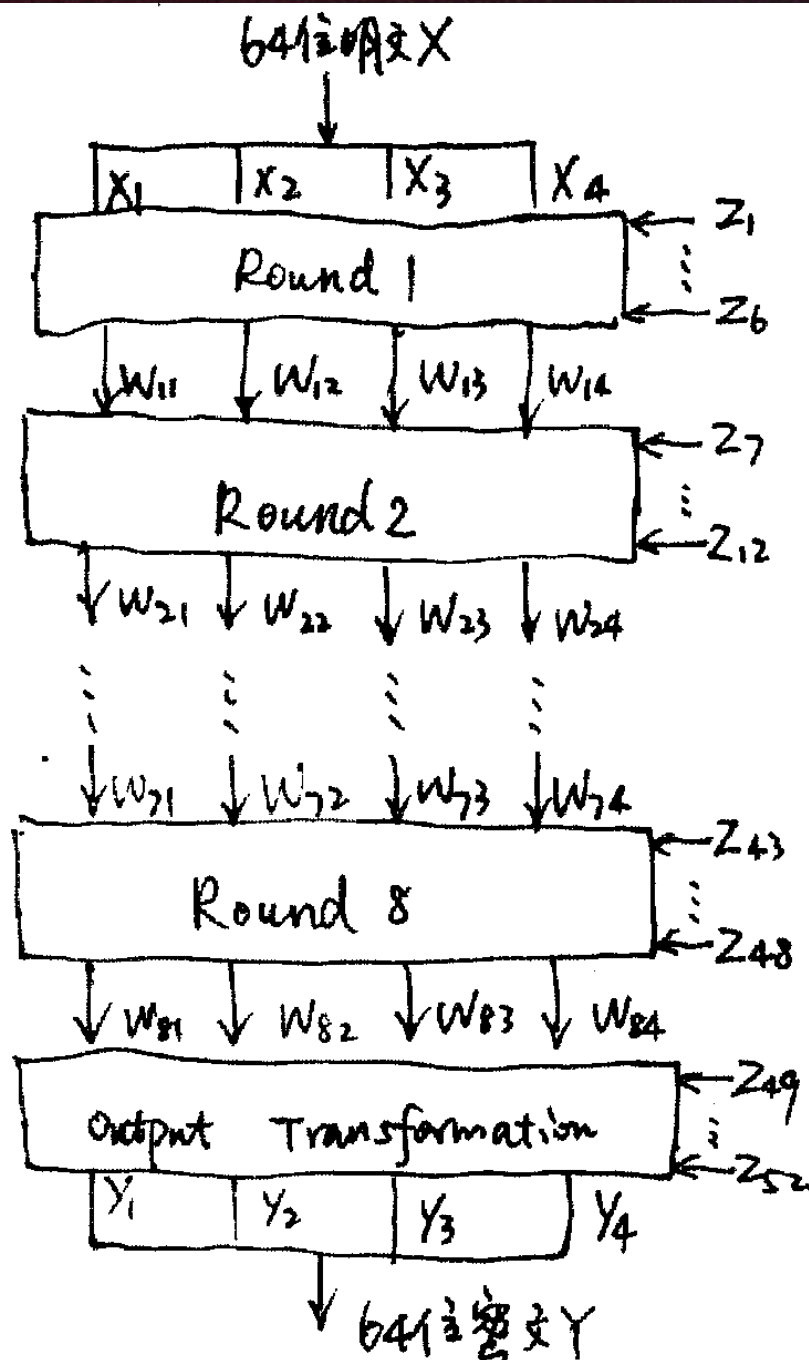 64位明文X
X₁ X₂ X₃ X₄
Z₁
Round 1
⋮
Z₆
W₁₁ W₁₂ W₁₃ W₁₄
Z₇
Round 2
⋮
Z₁₂
W₂₁ W₂₂ W₂₃ W₂₄
⋮ ⋮ ⋮ ⋮
W₇₁ W₇₂ W₇₃ W₇₄
Z₄₃
Round 8
⋮
Z₄₈
W₈₁ W₈₂ W₈₃ W₈₄
Z₄₉
Output Transformation
⋮
Z₅₂
Y₁ Y₂ Y₃ Y₄
64位密文Y